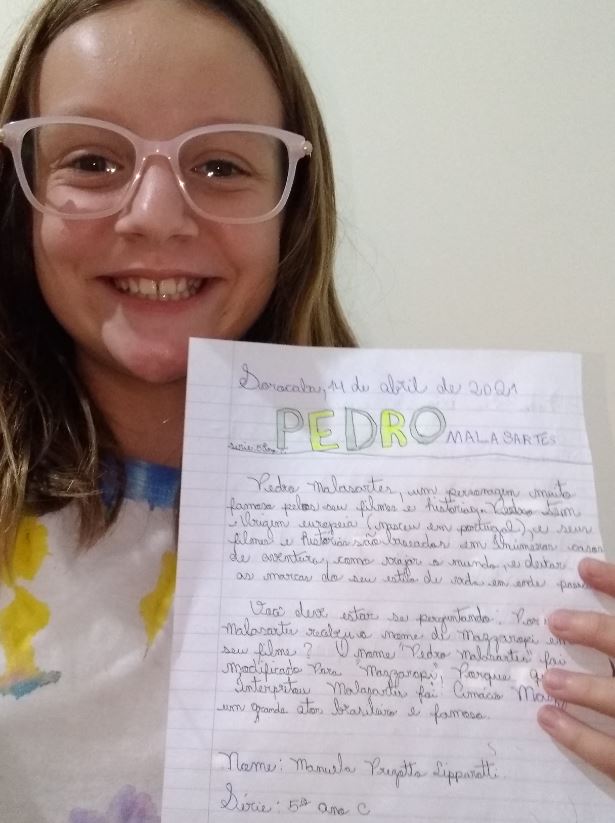 Sorocaba, 14 de abril de 2021
PEDRO MALASARTES
Pedro Malasartes, um personagem muito
famoso pelos seu filmes e histórias. Pedro tem
origem europeia (nasceu em portugal), e seus
filmes e histórias são baseadas em inúmeros casos
de aventura, como viajar o mundo, e deixar
as marcas do seu estilo de vida em onde
Você deve estar se perguntando: Por
Malasartes recebeu o nome de Mazzaropi em
seu filme? O nome "Pedro Malasartes" foi
modificado Para "Mazzaropi", Porque
Interpretou Malasartes foi:
um grande ator brasileiro e famoso.
Nome: Manuela
Série: 5º ano C